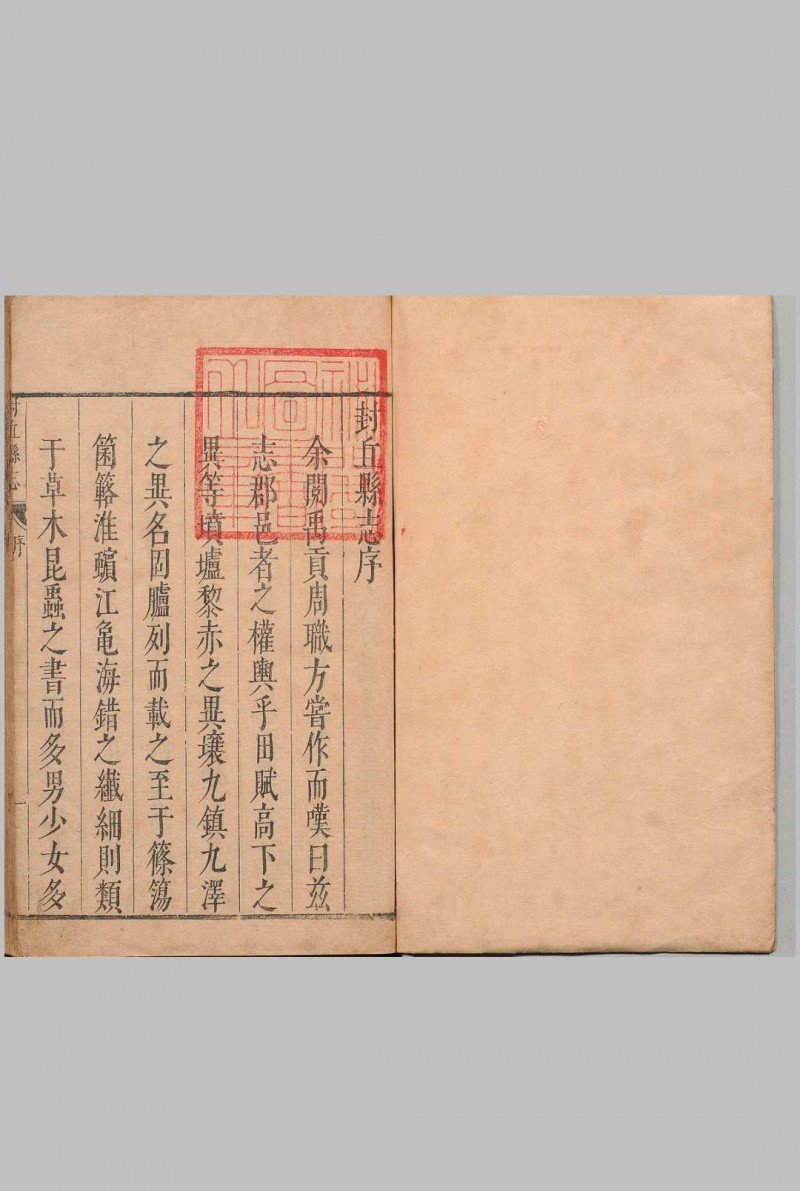 封丘縣志序
余閱禹貢周職方嘗作而嘆曰兹
志郡邑者之權輿乎田賦高下之
異等墳壚黎赤之異壤九鎮九澤
之異名罔臚列而載之至于篠簜
箘簵淮蠙江龜海錯之纖細則類
于草木昆蟲之書而多男少女多
封丘縣志
序
一